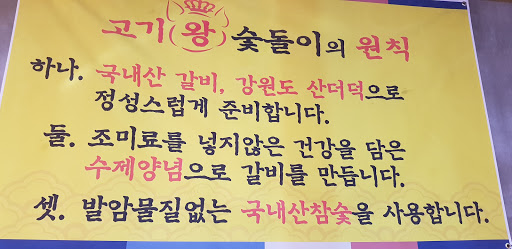 고기(왕)숯돌이의 원칙
하나. 국내산 갈비, 강원도 산더덕으로
정성스럽게 준비합니다.
둘. 조미료를 넣지않은 건강을 담은
수제양념으로 갈비를 만듭니다.
셋. 발암물질없는 국내산참숯을 사용합니다.